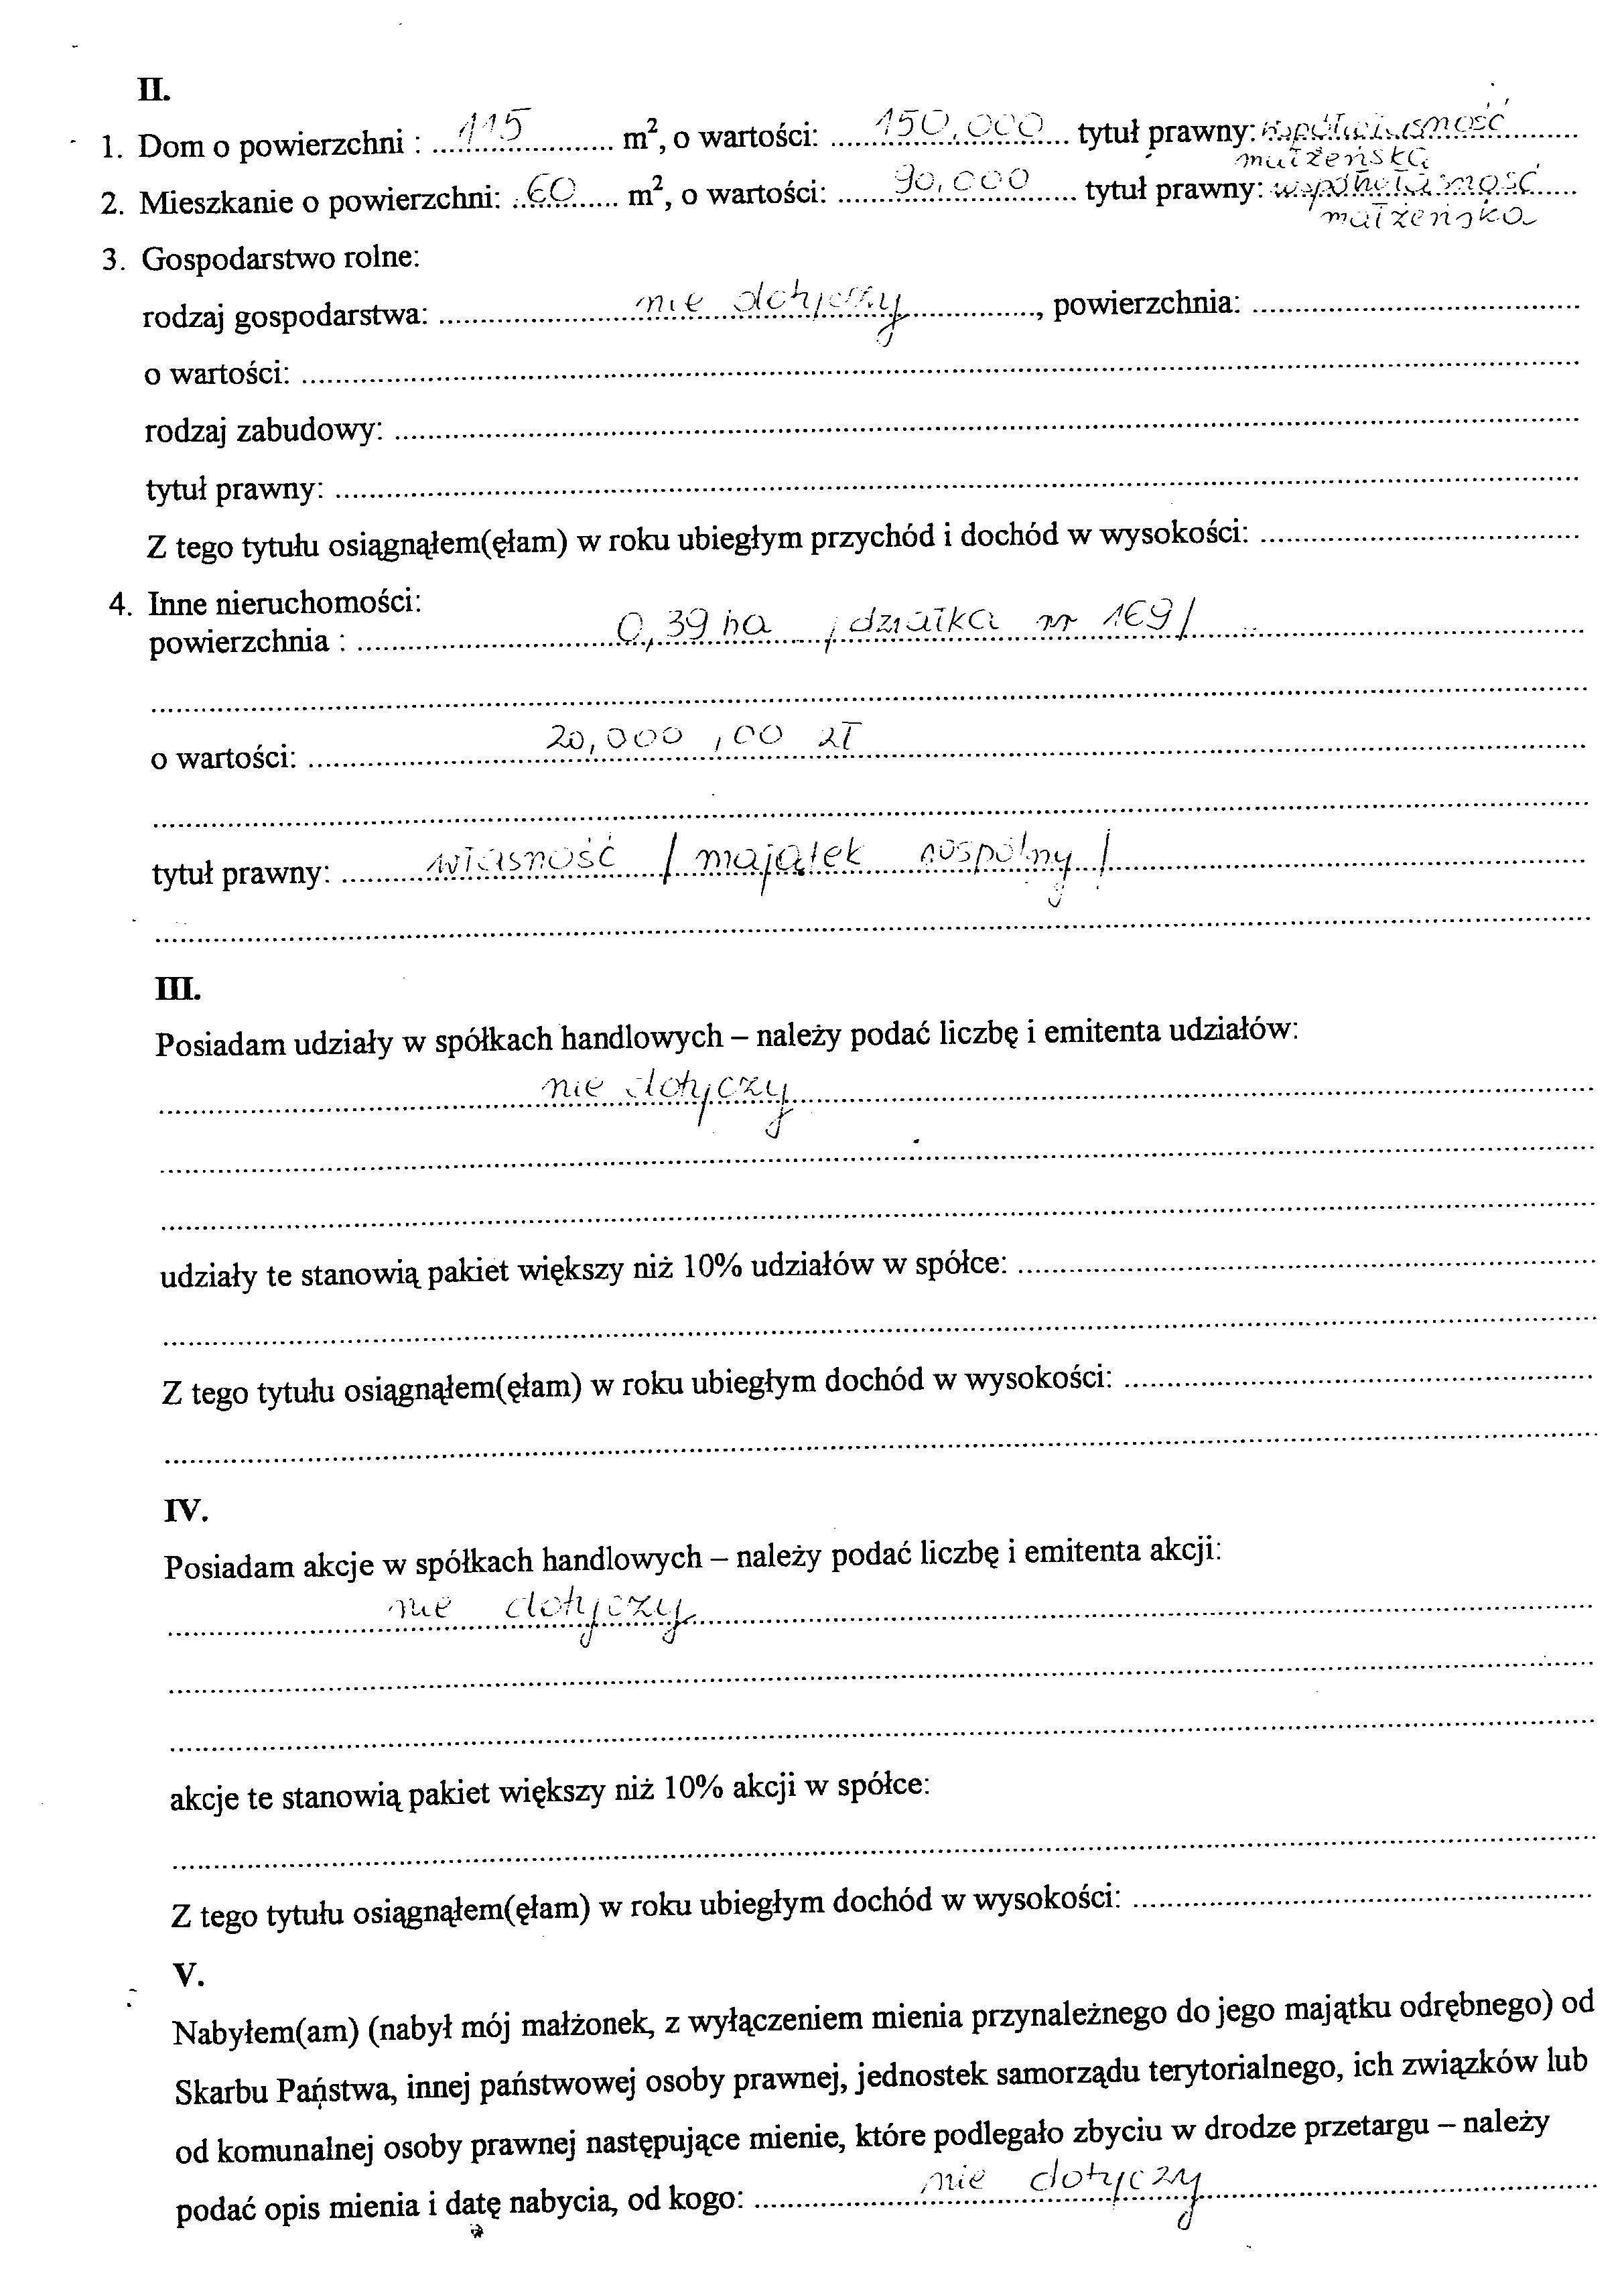 II.
1. Dom o powierzchni : ...115... m², o wartości: ...150.000... tytuł prawny: współwłasność
małżeńska
2. Mieszkanie o powierzchni: ...60... m², o wartości: ...90.000... tytuł prawny: współwłasność
małżeńska
3. Gospodarstwo rolne:
rodzaj gospodarstwa: ...nie dotyczy..., powierzchnia: ...
o wartości: ...
rodzaj zabudowy: ...
tytuł prawny: ...
Z tego tytułu osiągnąłem(ęłam) w roku ubiegłym przychód i dochód w wysokości: ...
4. Inne nieruchomości:
powierzchnia : ...0,39 ha / działka nr 169/...
o wartości: ...20,000,00 zł...
tytuł prawny: ...własność / majątek wspólny /...
III.
Posiadam udziały w spółkach handlowych – należy podać liczbę i emitenta udziałów:
...nie dotyczy...
udziały te stanowią pakiet większy niż 10% udziałów w spółce: ...
Z tego tytułu osiągnąłem(ęłam) w roku ubiegłym dochód w wysokości: ...
IV.
Posiadam akcje w spółkach handlowych – należy podać liczbę i emitenta akcji:
...nie dotyczy...
akcje te stanowią pakiet większy niż 10% akcji w spółce:
Z tego tytułu osiągnąłem(ęłam) w roku ubiegłym dochód w wysokości: ...
V.
Nabyłem(am) (nabył mój małżonek, z wyłączeniem mienia przynależnego do jego majątku odrębnego) od
Skarbu Państwa, innej państwowej osoby prawnej, jednostek samorządu terytorialnego, ich związków lub
od komunalnej osoby prawnej następujące mienie, które podlegało zbyciu w drodze przetargu – należy
podać opis mienia i datę nabycia, od kogo: ...nie dotyczy...